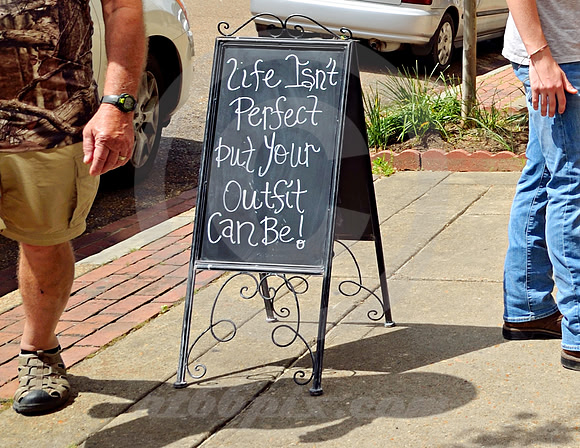 Life Isn't
Perfect
but Your
Outfit
Can Be!